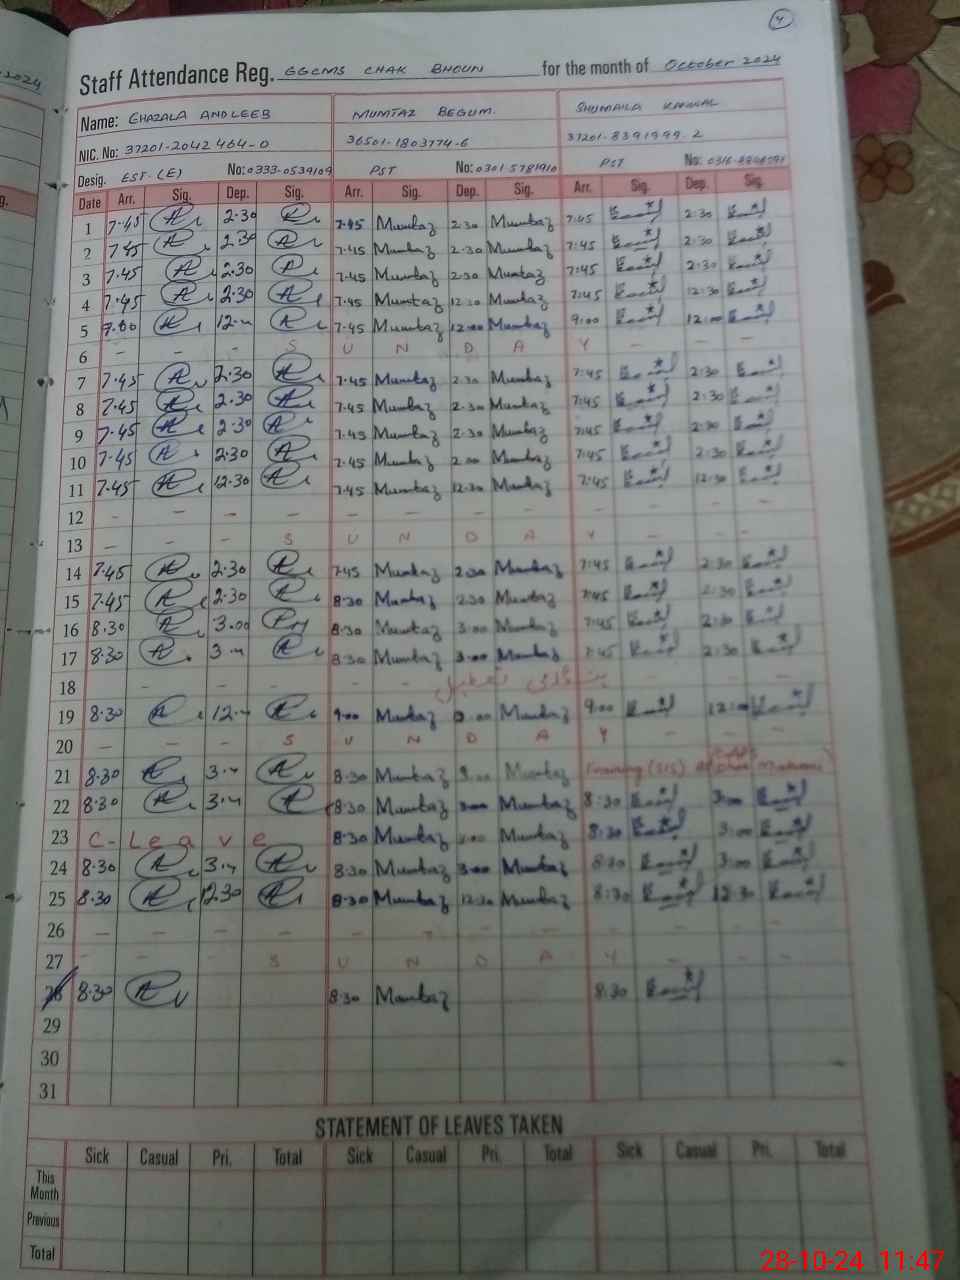 4
2024
Staff Attendance Reg. GGCMS CHAK BHOUN for the month of October 2024
Name: GHAZALA ANDLEEB MUMTAZ BEGUM. SHUMAILA KANWAL
NIC. No: 37201-2042464-0 36501-1803774-6 37201-8391999-2
Desig. EST-(E) No: 0333-0539109 PST No: 0301 5781910 PST No:
Date Arr. Sig. Dep. Sig. Arr. Sig. Dep. Sig. Arr. Sig. Dep. Sig.
1 7.45 2.30 7.45 Mumtaz 2.30 Mumtaz 7:45 2:30
2 7.45 2.30 7.45 Mumtaz 2.30 Mumtaz 7:45 2:30
3 7.45 2.30 7.45 Mumtaz 2.30 Mumtaz 7:45 2:30
4 7.45 2.30 7.45 Mumtaz 12.30 Mumtaz 7:45 12:30
5 12.- 7.45 Mumtaz 12.00 Mumtaz 9:00 12:00
6 - - - S U N D A Y - - -
7 7.45 2.30 7.45 Mumtaz 2.30 Mumtaz 7:45 2:30
8 7.45 2.30 7.45 Mumtaz 2.30 Mumtaz 7:45 2:30
9 7.45 2.30 7.45 Mumtaz 2.30 Mumtaz 7:45 2:30
10 7.45 2.30 7.45 Mumtaz 2.30 Mumtaz 7:45 2:30
11 7.45 12.30 7.45 Mumtaz 12.30 Mumtaz 7:45 12:30
12 - - - - - - - - - - - -
13 - - - S U N D A Y - - -
14 7.45 2.30 7.45 Mumtaz 2.30 Mumtaz 7:45 2:30
15 7.45 2.30 8.30 Mumtaz 2.30 Mumtaz 7:45 2:30
16 8.30 3.00 8.30 Mumtaz 3.00 Mumtaz 7:45 2:30
17 8.30 3.- 8.30 Mumtaz 3.00 Mumtaz 7:45 2:30
18 - - - - - تعطیل - - - -
19 8.30 12.- 9.00 Mumtaz Mumtaz 9:00 12:00
20 - - - S U N D A Y - - -
21 8.30 3.- 8.30 Mumtaz 3.00 Mumtaz Training
22 8.30 3.- 8.30 Mumtaz 3.00 Mumtaz 8:30 3:00
23 C- Leave 8.30 Mumtaz 3.00 Mumtaz 8:30 3:00
24 8.30 3.- 8.30 Mumtaz 3.00 Mumtaz 8:30 3:00
25 8.30 12.30 8.30 Mumtaz 12.30 Mumtaz 8:30 12:30
26 - - - - - - - - - - - -
27 - - - S U N D A Y - - -
28 8.30 8.30 Mumtaz 8:30
29
30
31
STATEMENT OF LEAVES TAKEN
Sick Casual Pri. Total Sick Casual Pri. Total Sick Casual Pri. Total
This Month
Previous
Total
28-10-24 11:47